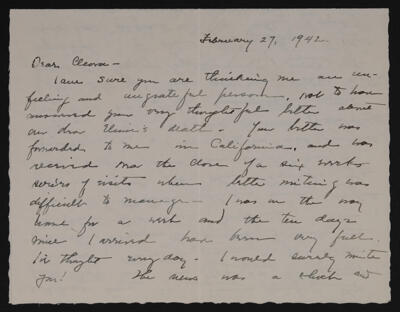 February 27, 1942
Dear Cleora -
I am sure you are thinking me an un-
feeling and ungrateful person, not to have
answered your very thoughtful letter about
our dear death. Your letter was
forwarded to me in California, and was
received near the close of a six weeks
series of visits when letter writing was
difficult to manage - I was on the way
home for a week and the ten days
since I arrived have been very full.
I've thought every day - I would surely write
you! The news was a shock and